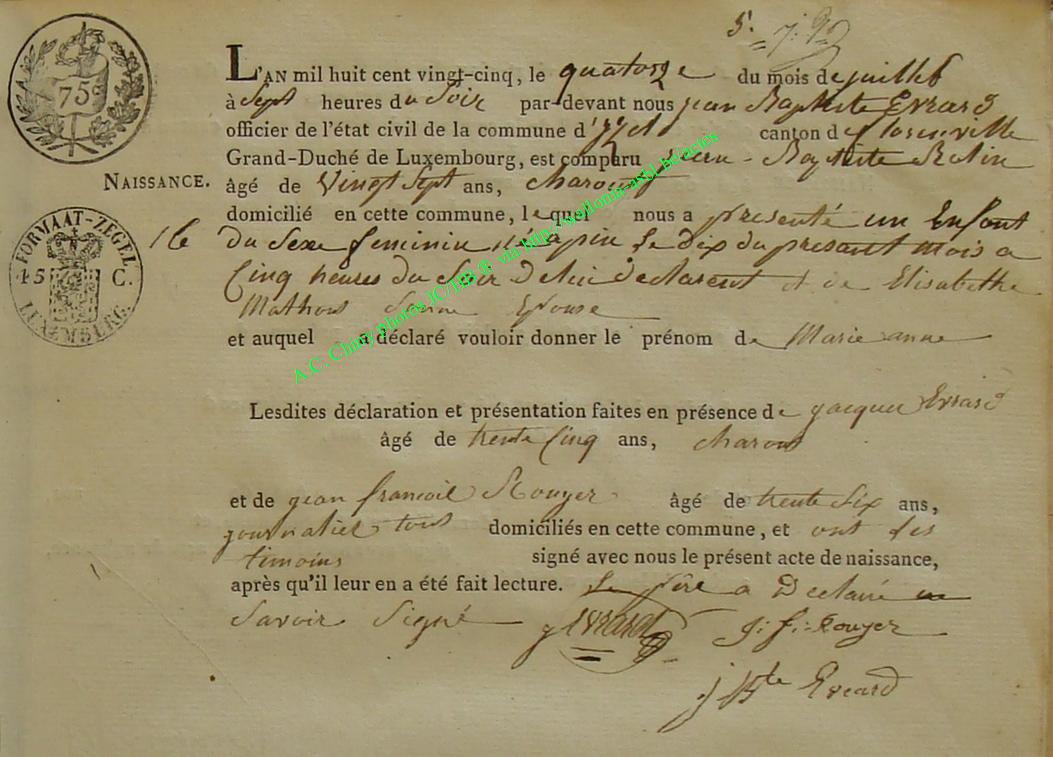 5.
75c
L'AN mil huit cent vingt-cinq, le quatorze du mois de juillet
à Sept heures du Soir par-devant nous jean Baptiste Evrard
officier de l'état civil de la commune d'izel canton de florenville
Grand-Duché de Luxembourg, est comparu Jean-Baptiste Rolin
NAISSANCE. âgé de Vingt Sept ans, charon
FORMAAT-ZEGEL
45 C.
LUXEMBERG.
domicilié en cette commune, lequel nous a presenté un Enfant
16 du Sexe feminin né a pin le dix du presant mois a
Cinq heures du Soir de lui declarent et de Elisabethe
Mathous Sonne Epouse
et auquel a déclaré vouloir donner le prénom de Marie anne
Lesdites déclaration et présentation faites en présence de jacques Evrard
âgé de trente Cinq ans, charon
et de jean francoil Rouyer âgé de trente Six ans,
journaliel tous domiciliés en cette commune, et ont les
timoins signé avec nous le présent acte de naissance,
après qu'il leur en a été fait lecture. Le père a Declairé ne
Savoir Signé j Evrard j: f: Rouyer
j Bte Evrard
A.C. Chiny photos JC/HB ® via http://wallonia-asbl.be/actes